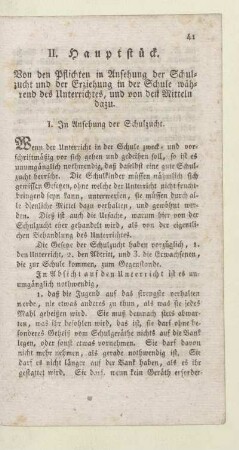 41
II. Hauptstück.
Von den Pflichten in Ansehung der Schul-
zucht und der Erziehung in der Schule wäh-
rend des Unterrichtes, und von den Mitteln
dazu.
I. In Ansehung der Schulzucht.
Wenn der Unterricht in der Schule zweck- und vor-
schriftmäßig vor sich gehen und gedeihen soll, so ist es
unumgänglich nothwendig, daß daselbst eine gute Schul-
zucht herrsche. Die Schulkinder müssen nähmlich sich
gewissen Gesetzen, ohne welche der Unterricht nicht frucht-
bringend seyn kann, unterwerfen, sie müssen durch
alle dienliche Mittel dazu verhalten, und gewöhnet wer-
den. Dieß ist auch die Ursache, warum hier von der
Schulzucht eher gehandelt wird, als von der eigent-
lichen Behandlung des Unterrichtes.
Die Gesetze der Schulzucht haben vorzüglich, 1.
den Unterricht, 2. den Abtritt, und 3. die Erwachsenen,
die zur Schule kommen, zum Gegenstande.
In Absicht auf den Unterricht ist es un-
umgänglich nothwendig,
1. daß die Jugend auf das strengste verhalten
werde, nie etwas anderes zu thun, als was sie jedes
Mahl geheißen wird. Sie muß demnach stets abwar-
ten, bis ihr gesagt wird, was das ist, sie darf ohne be-
sonderes Geheiß vom Schulgeräthe nichts auf die Bank
legen, oder sonst etwas vornehmen. Sie darf davon
nicht mehr nehmen, als gerade nothwendig ist. Sie
darf es nicht länger auf der Bank haben, als es ihr
gestattet wird. Sie darf, wenn kein Geräth erforder-